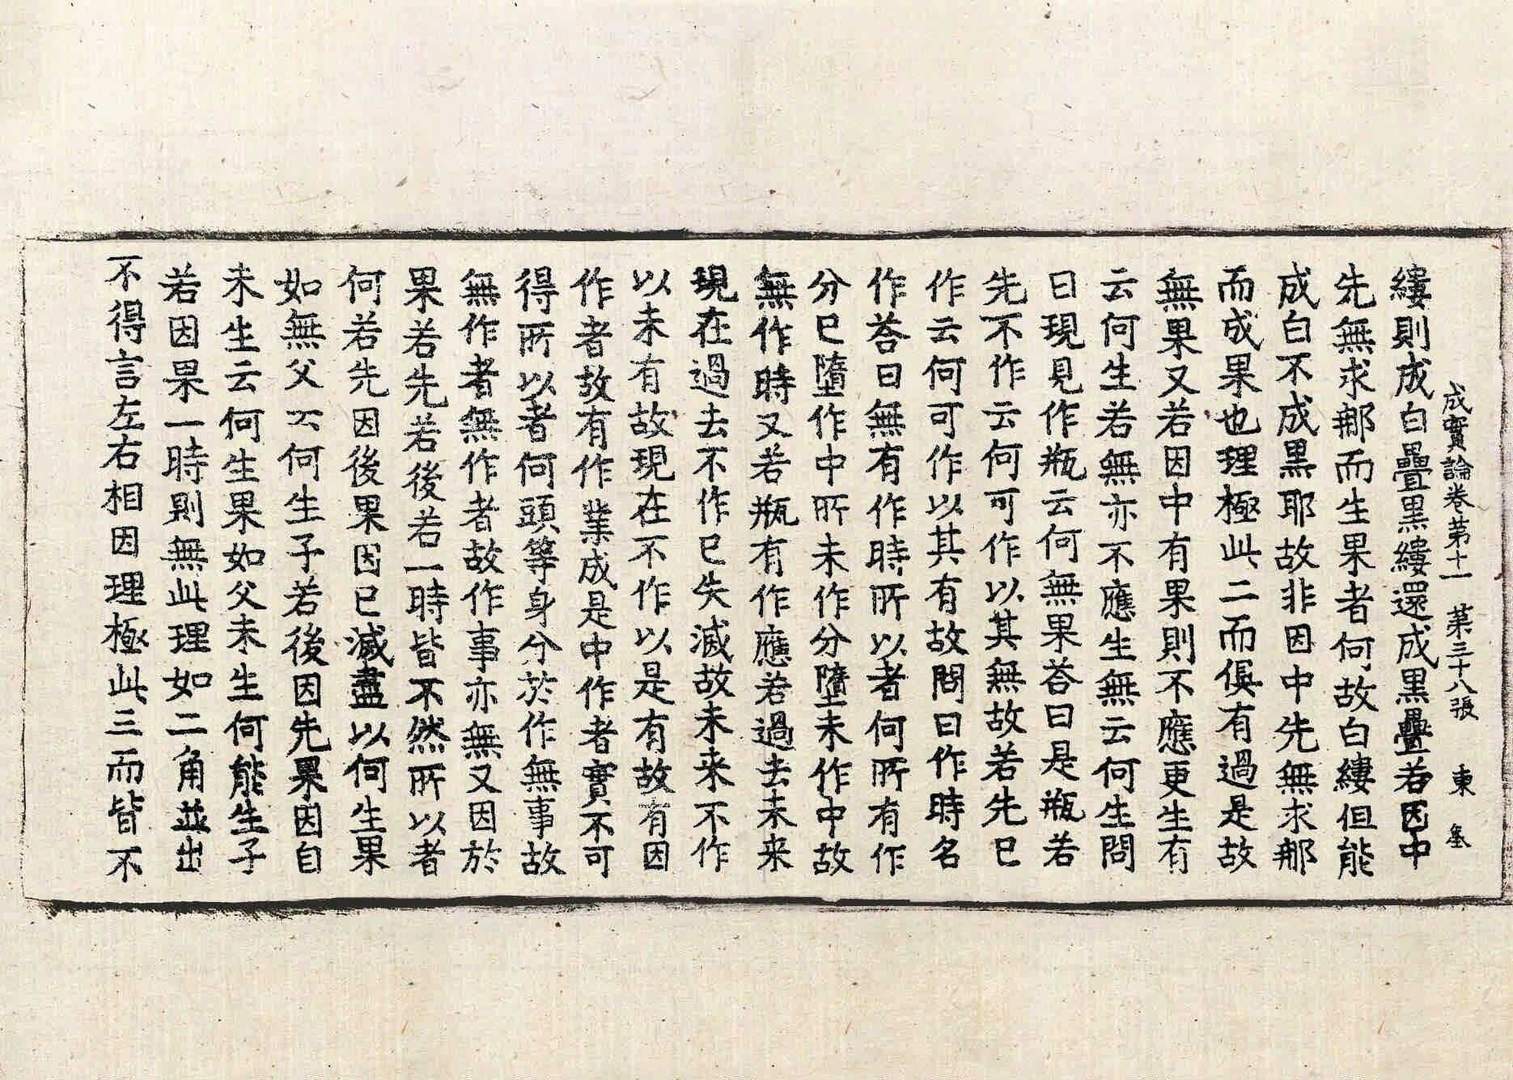 成實論卷第十一 第三十八張 東 𡊮
縷則成白疊黑縷還成黑疊若因中
先無求那而生果者何故白縷但能
成白不成黑耶故非因中先無求那
而成果也理極此二而俱有過是故
無果又若因中有果則不應更生有
云何生若無亦不應生無云何生問
曰現見作瓶云何無果荅曰是瓶若
先不作云何可作以其無故若先已
作云何可作以其有故問曰作時名
作荅曰無有作時所以者何所有作
分已墮作中所未作分墮未作中故
無作時又若瓶有作應若過去未来
現在過去不作已失滅故未来不作
以未有故現在不作以是有故有因
作者故有作業成是中作者實不可
得所以者何頭等身分於作無事故
無作者無作者故作事亦無又因於
果若先若後若一時皆不然所以者
何若先因後果因已滅盡以何生果
如無父云何生子若後因先果因自
未生云何生果如父未生何能生子
若因果一時則無此理如二角並出
不得言左右相因理極此三而皆不